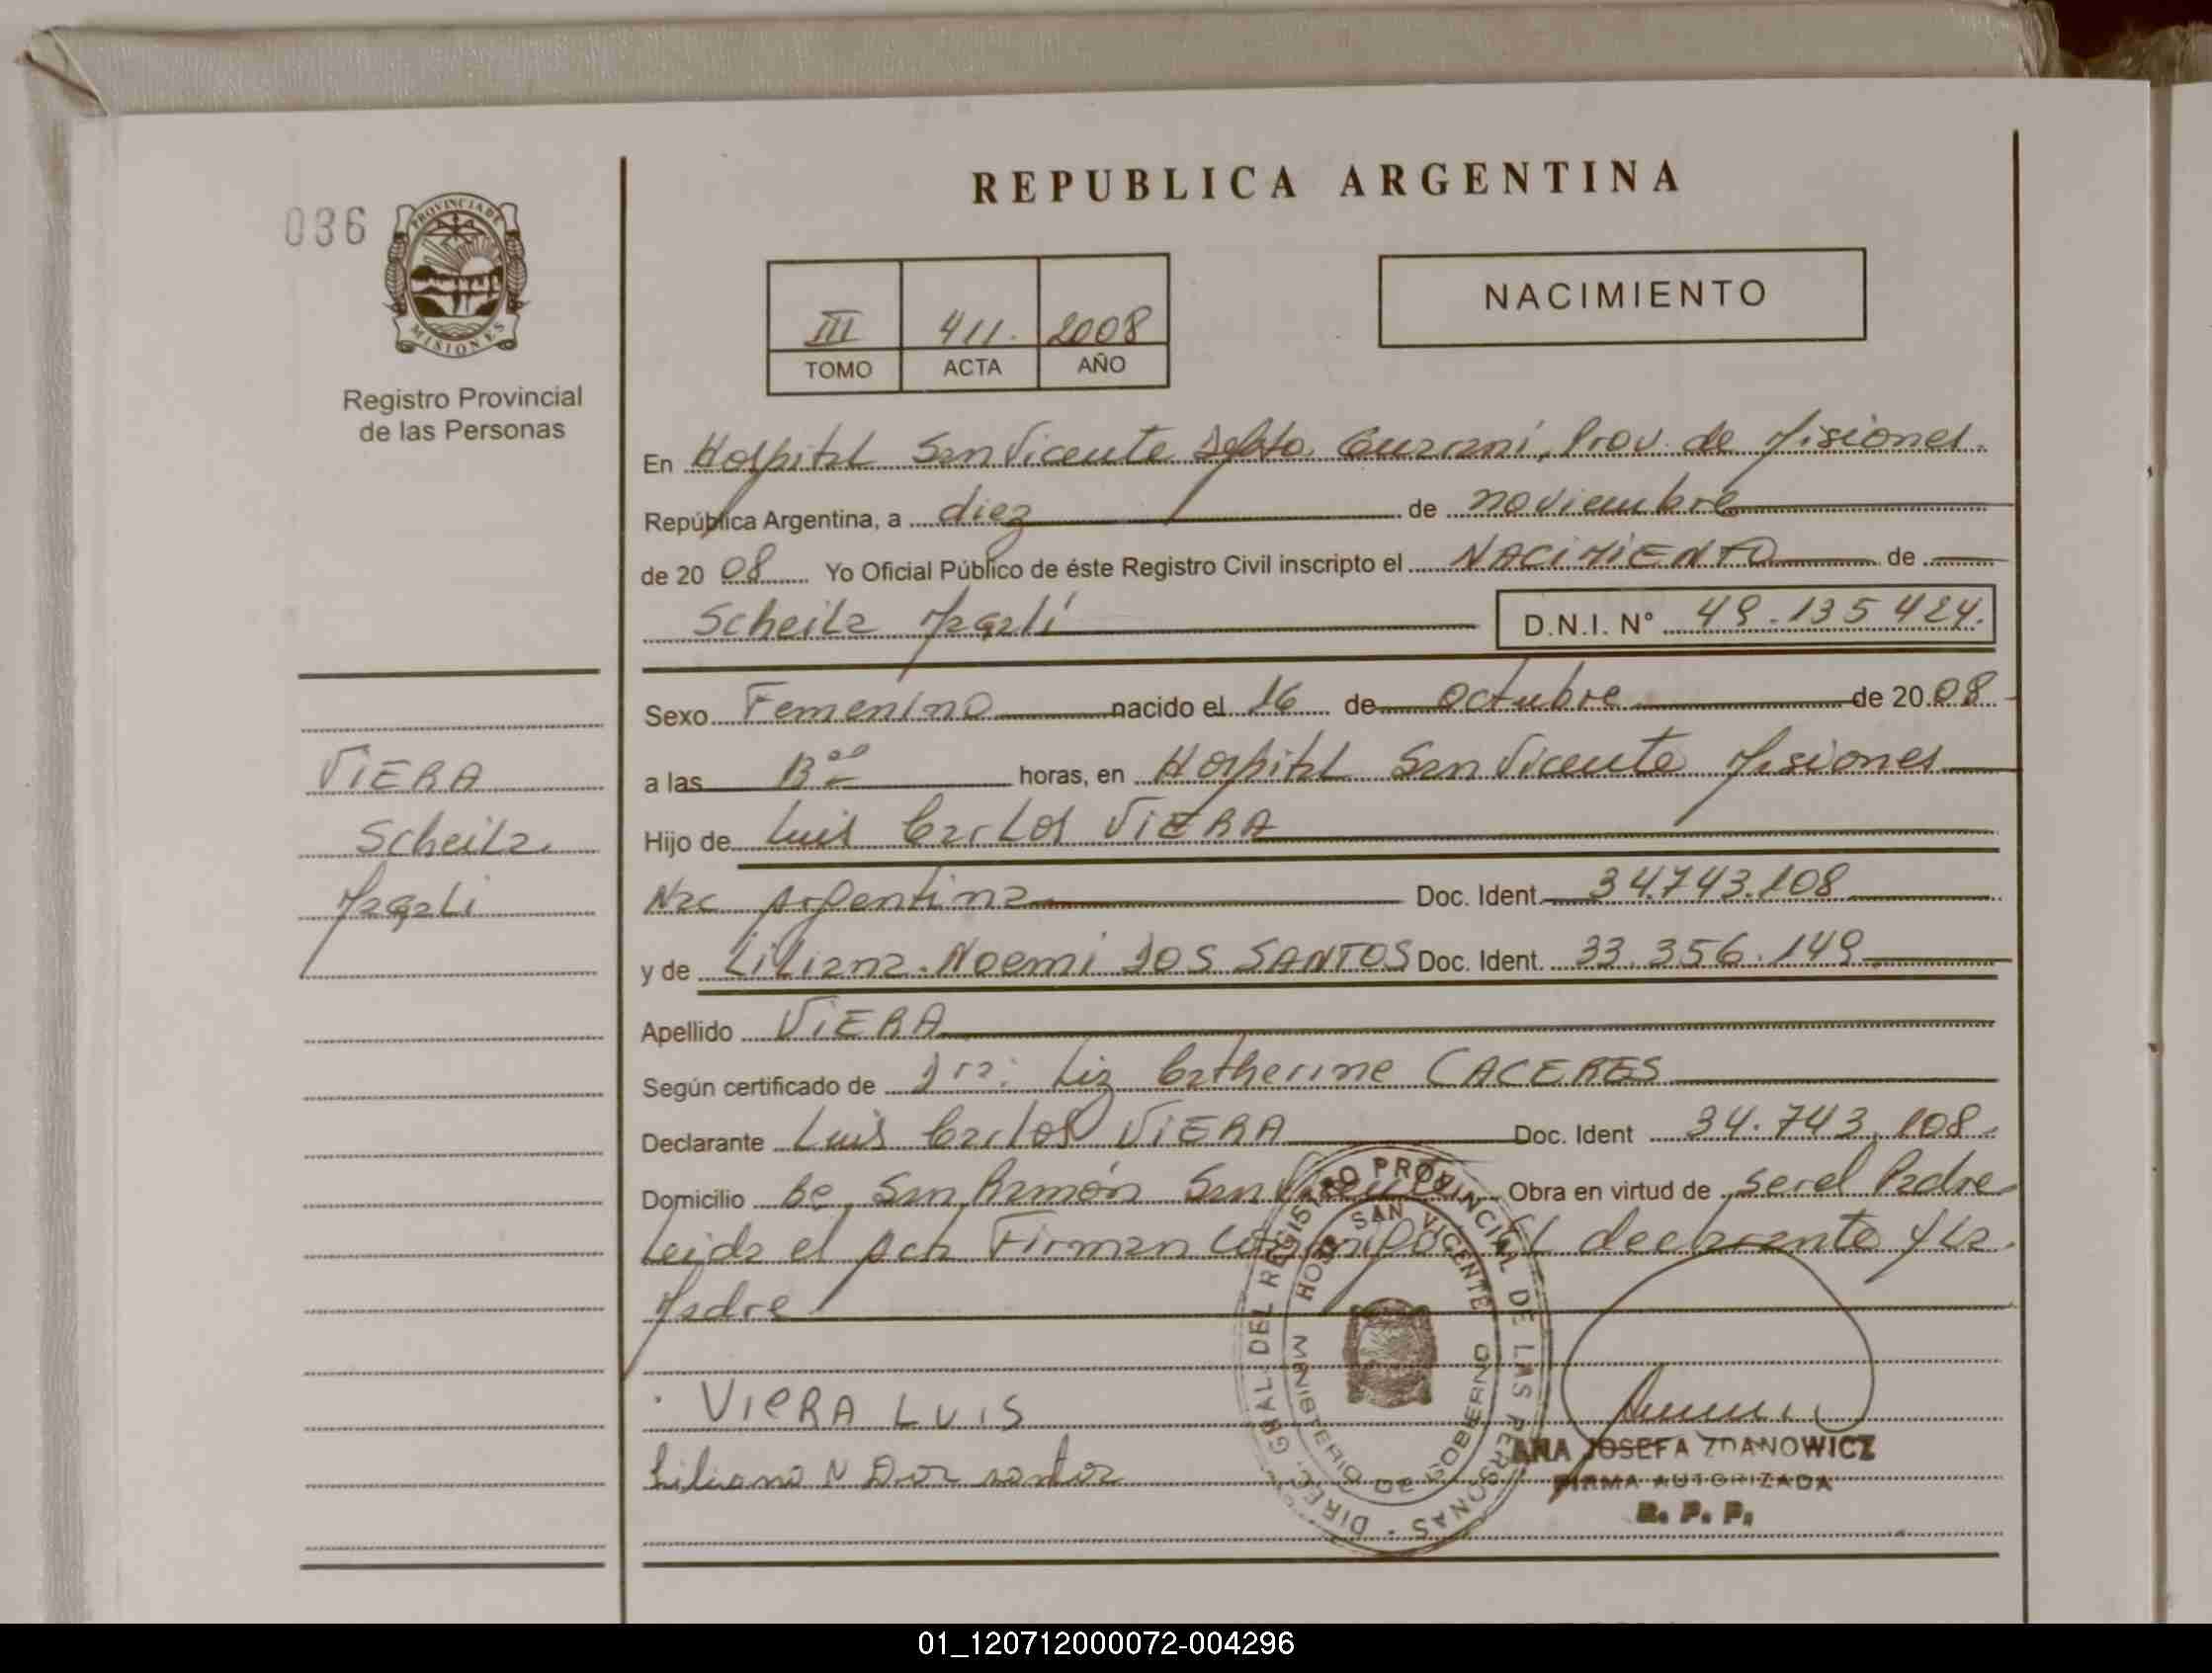 REPUBLICA ARGENTINA
036
PROVINCIA DE
MISIONES
Registro Provincial
de las Personas
NACIMIENTO
III 411. 2008
TOMO ACTA AÑO
En Hospital San Vicente Dpto Guaraní, Prov. de Misiones.
República Argentina, a diez de noviembre
de 2008 Yo Oficial Público de éste Registro Civil inscripto el NACIMIENTO de
Scheila Magalí D.N.I. Nº 49.135424.
Sexo Femenino nacido el 16 de octubre de 2008
a las 13 00 horas, en Hospital San Vicente Misiones
Hijo de Luis Carlos VIERA
Nac Argentina Doc. Ident. 34.743.108
y de Liliana Noemi DOS SANTOS Doc. Ident. 33.356.149
Apellido VIERA
Según certificado de Dra: Liz Catherine CACERES
Declarante Luis Carlos VIERA Doc. Ident 34.743.108
Domicilio Bº San Ramón San Vicente Obra en virtud de ser el Padre
Leida el Acta Firman conmigo el declarante y la
Madre
VIERA
Scheila
Magali
VIeRA LUIS
Liliana N Dos santos
DIREC. GRAL. DEL REGISTRO PROVINCIAL DE LAS PERSONAS
HOSP. SAN VICENTE
MINISTERIO DE GOBIERNO
ANA JOSEFA ZDANOWICZ
FIRMA AUTORIZADA
R. P. P.
01_120712000072-004296